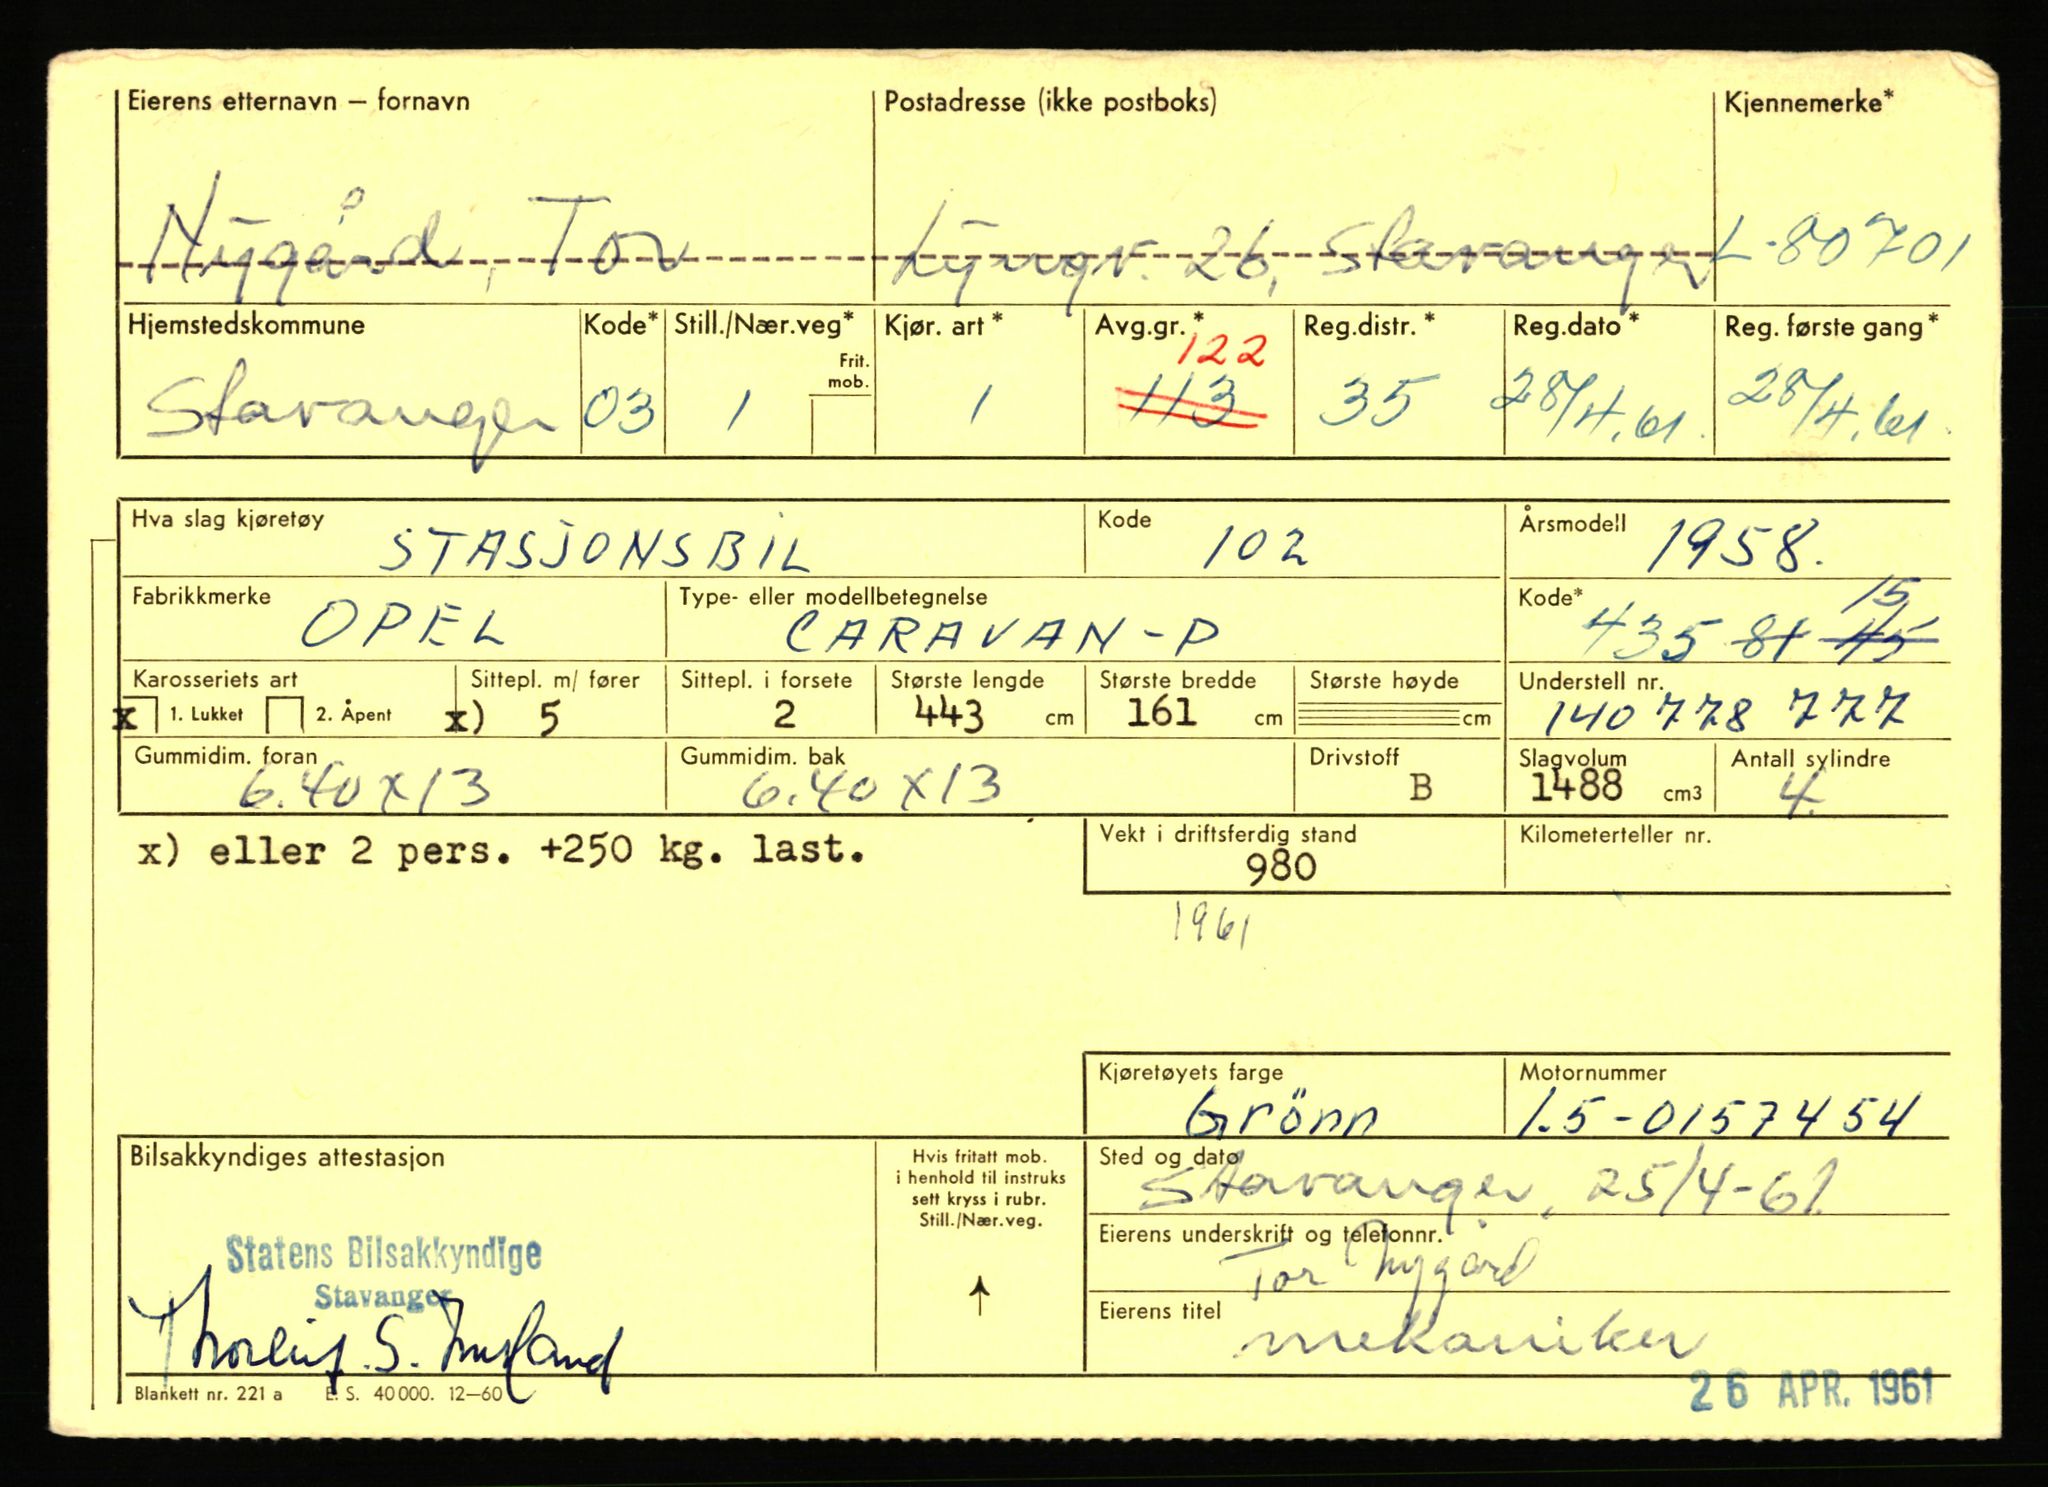 Eierens etternavn – fornavn Postadresse (ikke postboks) Kjennemerke*
Nygård, Tor Lyngv. 26, Stavanger L-80701
Hjemstedskommune Kode* Still./Nær.veg* Kjør. art* Avg.gr.* Reg.distr.* Reg.dato* Reg. første gang*
Frit. mob. 122
Stavanger 03 1 1 113 35 28/4.61. 28/4.61.
Hva slag kjøretøy STASJONSBIL Kode 102 Årsmodell 1958.
Fabrikkmerke OPEL Type- eller modellbetegnelse CARAVAN-P Kode* 435 81 45 15
Karosseriets art Sittepl. m/ fører Sittepl. i forsete Største lengde Største bredde Største høyde Understell nr.
x 1. Lukket 2. Åpent x) 5 2 443 cm 161 cm cm 140 778 777
Gummidim. foran Gummidim. bak Drivstoff Slagvolum Antall sylindre
6.40x13 6.40x13 B 1488 cm3 4.
x) eller 2 pers. +250 kg. last. Vekt i driftsferdig stand Kilometerteller nr.
980
1961
Kjøretøyets farge Motornummer
Grönn 1.5-0157454
Bilsakkyndiges attestasjon Hvis fritatt mob. Sted og dato
i henhold til instruks Stavanger, 25/4-61.
sett kryss i rubr.
Still./Nær.veg. Eierens underskrift og telefonnr.
Statens Bilsakkyndige Tor Nygård
Stavanger Eierens titel
S. mekaniker
Blankett nr. 221 a E. S. 40 000. 12–60 26 APR. 1961